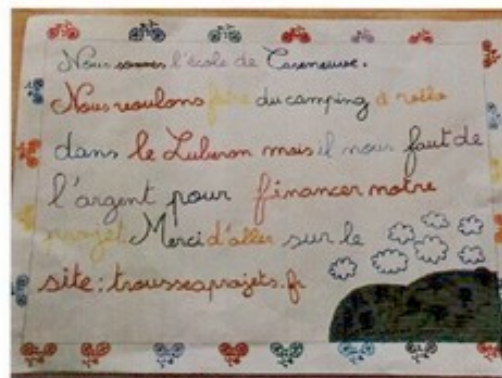 Nous sommes l'école de Caseneuve.
Nous voulons faire du camping à vélo
dans le Luberon mais il nous faut de
l'argent pour financer notre
projet. Merci d'aller sur le
site : trousseaprojets.fr